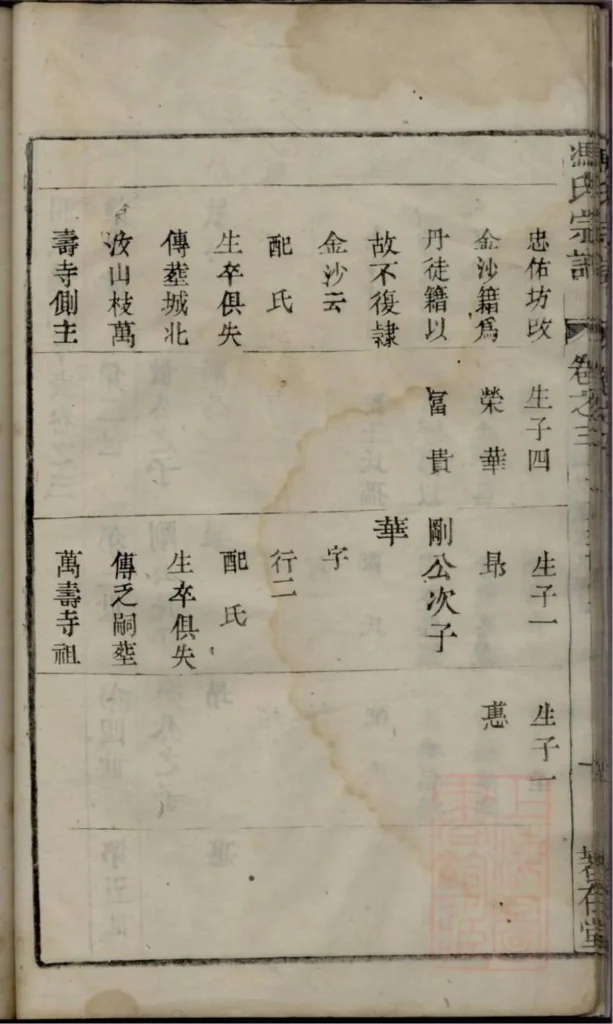 馮氏宗譜
卷之三
忠佑坊改
金沙籍爲
丹徒籍以
故不復隷
金沙云
配氏
生卒俱失
傳塟城北
汝山枝萬
壽寺側主
生子四
榮 華
富 貴
生子一
昻
剛公次子
華
字
行二
配氏
生卒俱失
傳乏嗣塟
萬壽寺祖
生子一
惪